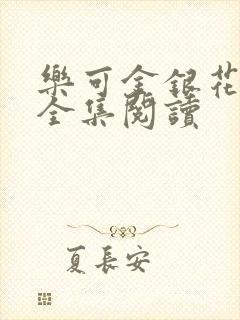 樂可金銀花
全集閱讀
夏長安